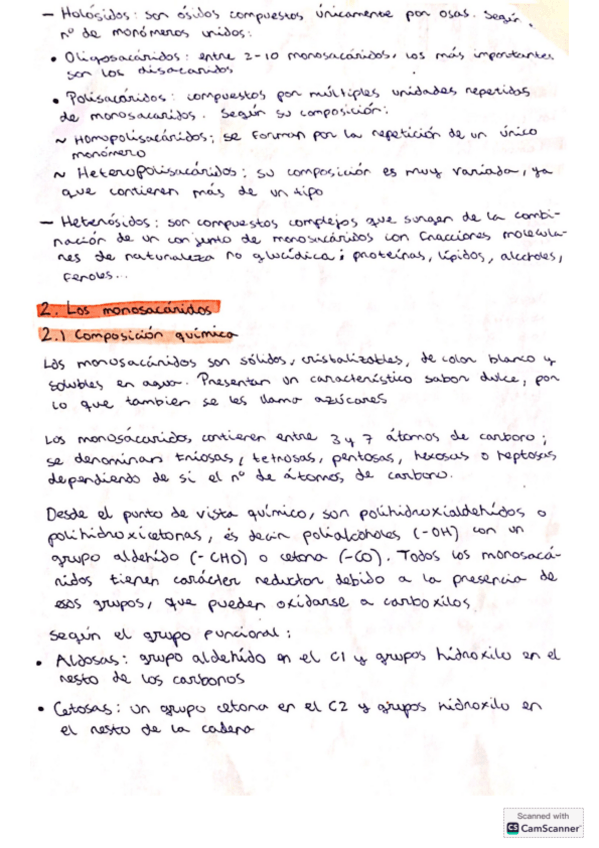 – Holósidos: son ósidos compuestos únicamente por osas. Según
nº de monómeros unidos:
• Oligosacáridos: entre 2-10 monosacáridos, los más importantes
son los disacaridos
• Polisacáridos: compuestos por múltiples unidades repetidas
de monosacaridos. Según su composición:
~ Homopolisacáridos: se forman por la repetición de un único
monómero
~ Heteropolisacáridos: su composición es muy variada, ya
que contienen más de un tipo
– Heterósidos: son compuestos complejos que surgen de la combi-
nación de un conjunto de monosacáridos con fracciones molecula-
res de naturaleza no glucídica; proteínas, lípidos, alcoholes,
fenoles...
2. Los monosacáridos
2.1 Composición química
Los monosacáridos son sólidos, cristalizables, de color blanco y
solubles en agua. Presentan un característico sabor dulce, por
lo que tambien se les llama azúcares
Los monosácaridos contienen entre 3 y 7 átomos de carbono;
se denominan triosas, tetrosas, pentosas, hexosas o heptosas
dependiendo de si el nº de átomos de carbono.
Desde el punto de vista químico, son polihidroxialdehídos o
polihidroxicetonas, es decir polialcoholes (-OH) con un
grupo aldehído (-CHO) o cetona (-CO). Todos los monosacá-
ridos tienen carácter reductor debido a la presencia de
esos grupos, que pueden oxidarse a carboxilos
Según el grupo funcional:
• Aldosas: grupo aldehído en el C1 y grupos hidroxilo en el
resto de los carbonos
• Cetosas: un grupo cetona en el C2 y grupos hidroxilo en
el resto de la cadena
Scanned with
CS CamScanner